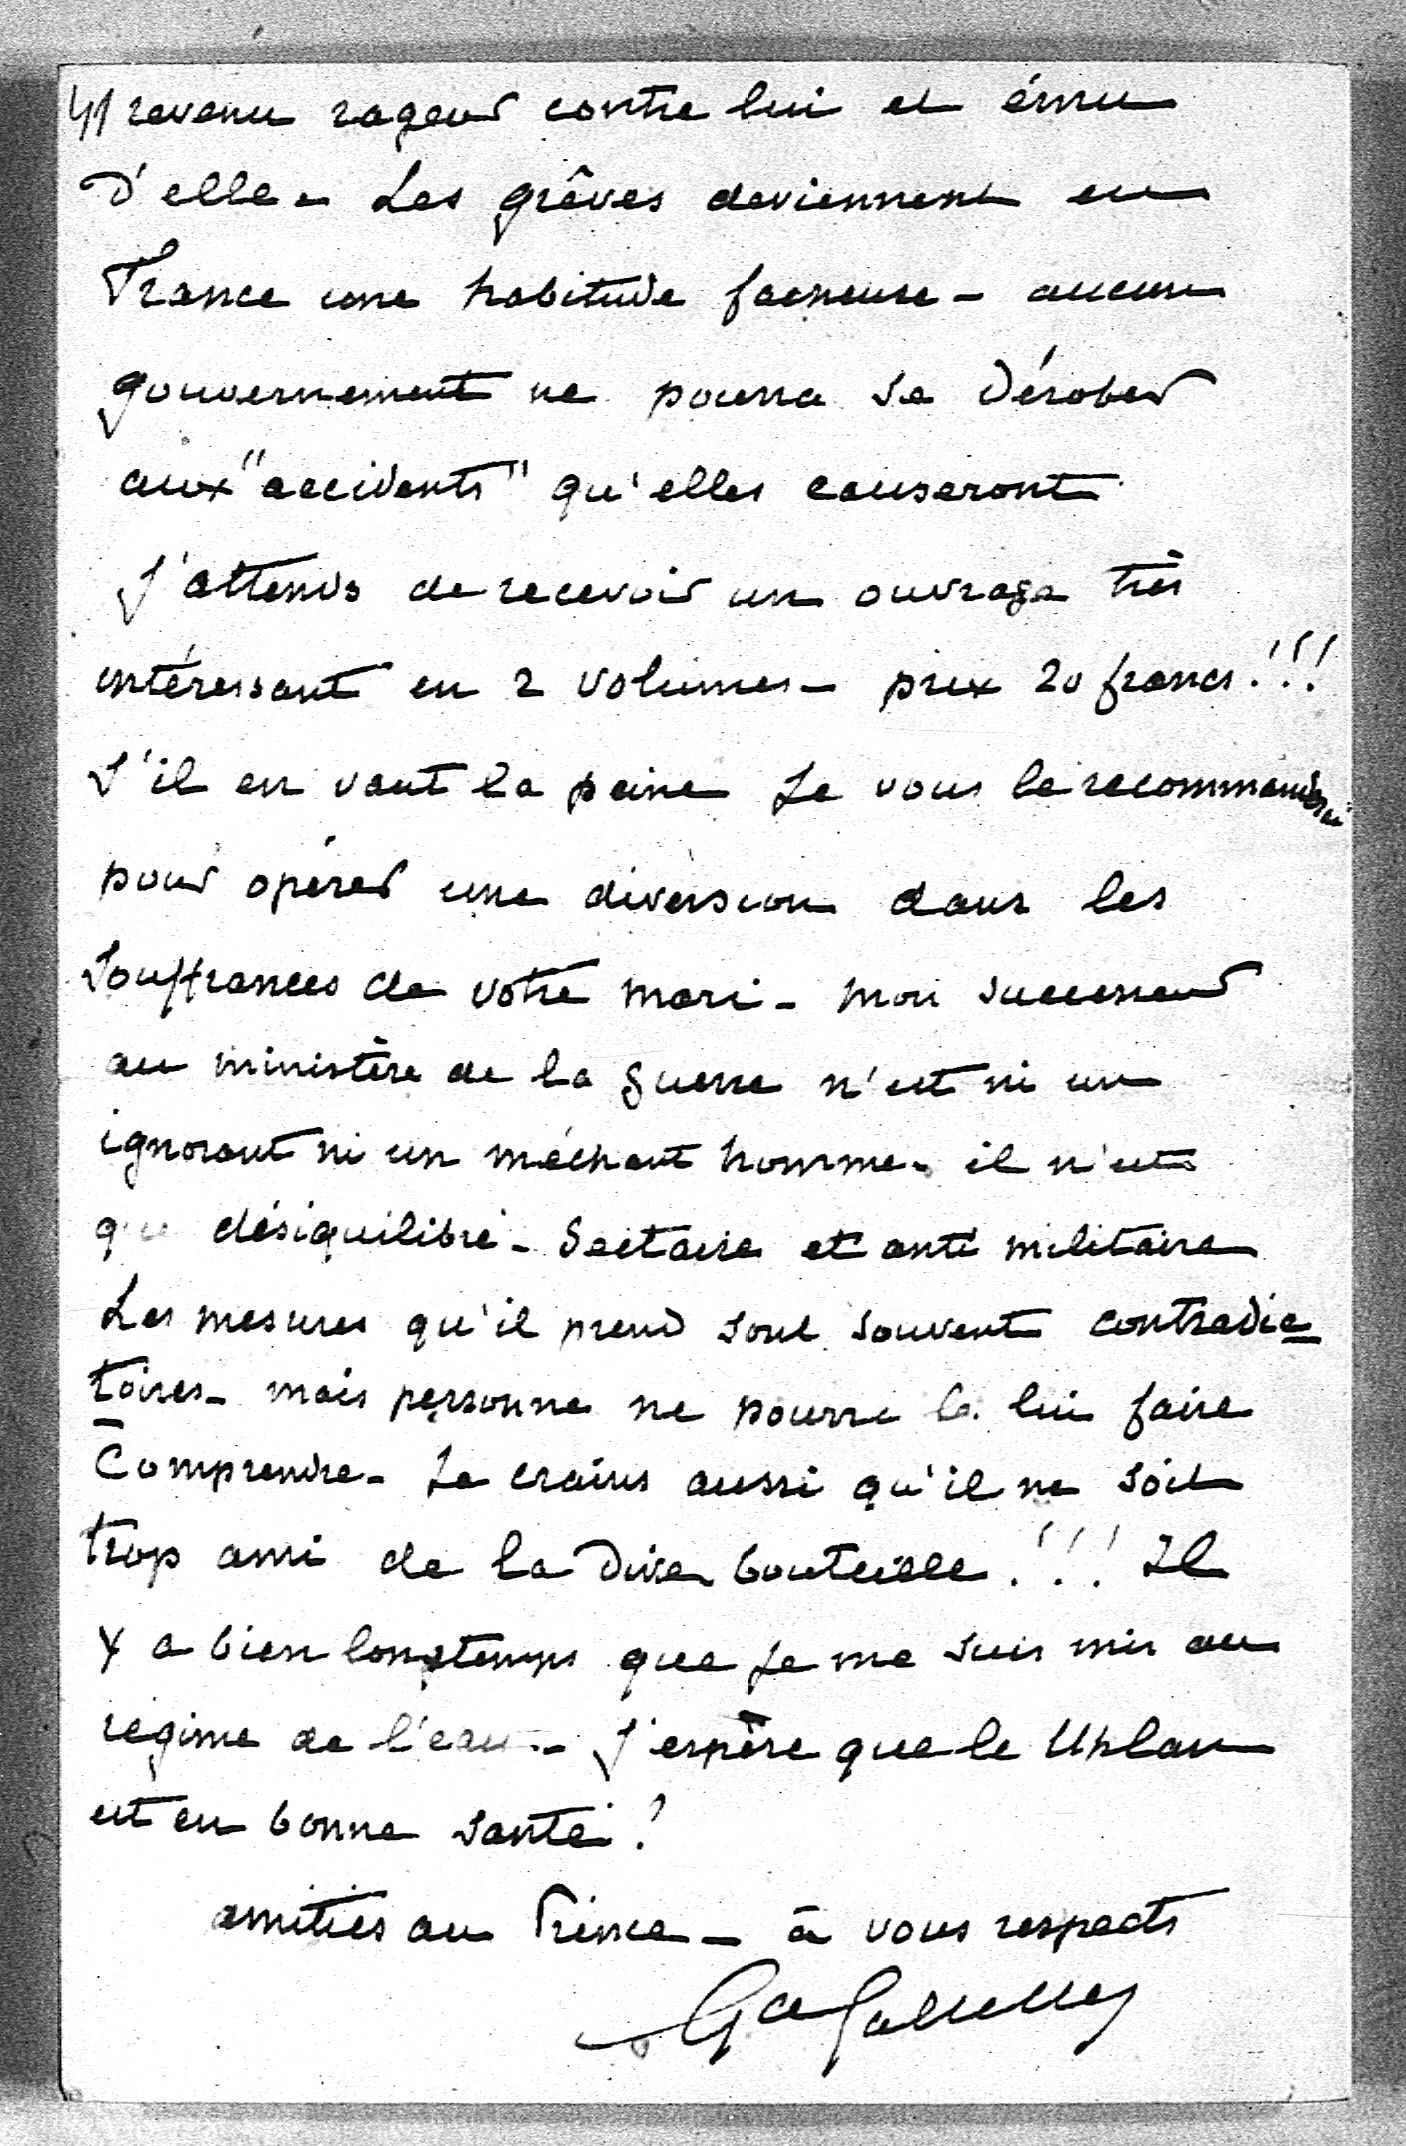 4/ revenu rageur contre lui et ému
d'elle - Les grêves deviennent en
France une habitude facheuse - aucun
gouvernement ne pourra se dérober
aux "accidents" qu'elles causeront
J'attends de recevoir un ouvrage très
intéressant en 2 volumes - prix 20 francs !!!
S'il en vaut la peine Je vous le recommanderai
pour opérer une diversion dans les
souffrances de votre mari - mon successeur
au ministère de la guerre n'est ni un
ignorant ni un méchant homme - il n'est
que désiquilibré - Sectaire et anti militaire
Les mesures qu'il prend sont souvent contradic
toires - mais personne ne pourra le lui faire
Comprendre - Je crains aussi qu'il ne soit
trop ami de la Dive bouteille !!! Il
y a bien longtemps que Je me suis mis au
régime de l'eau - J'espère que le Uhlan
est en bonne santé !
amitiés au Prince - à vous respects
Gal Galliffet